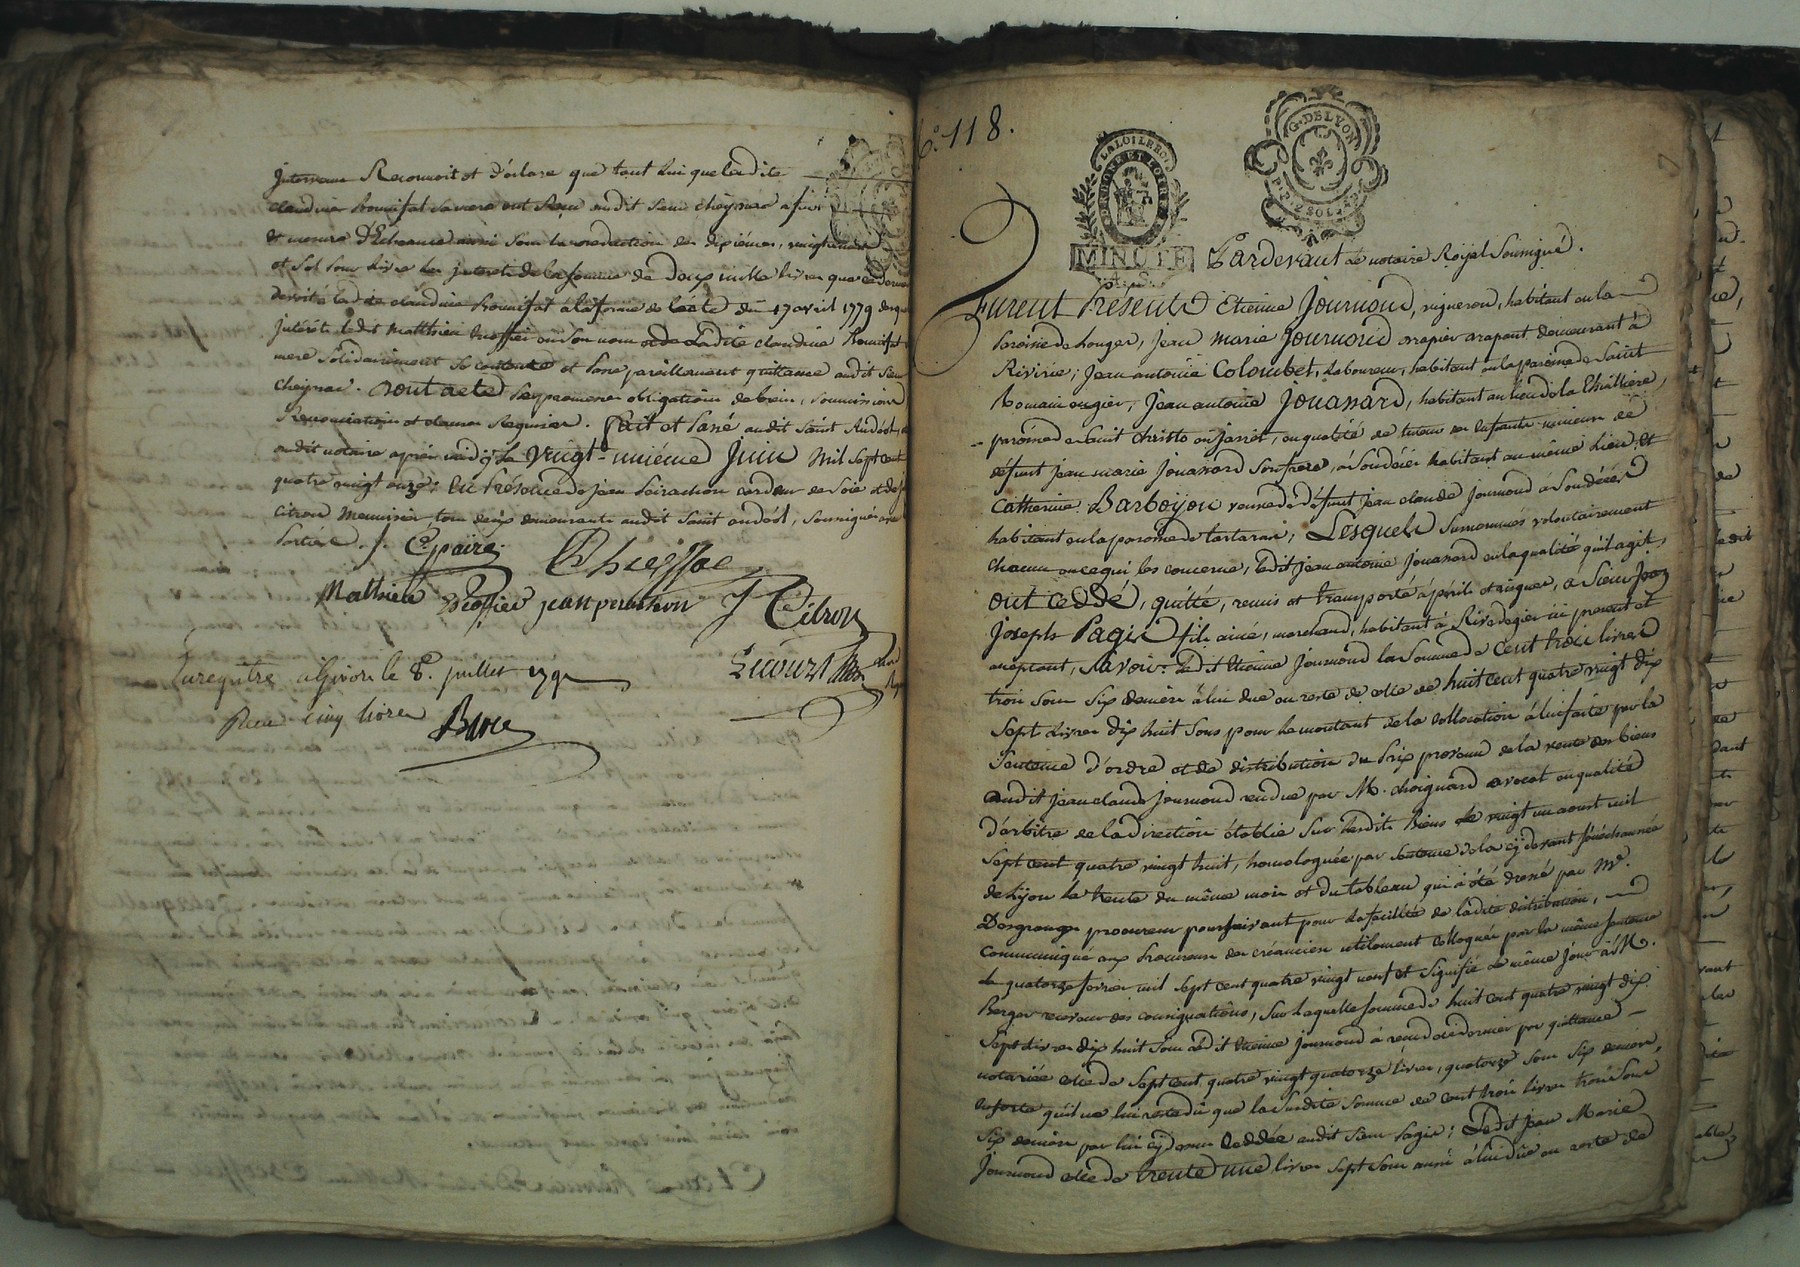 intervenu Reconnoit et déclare que tant lui que ladite
claudine Bonnifat sa mere ont Reçu dudit sieur cheynac a fur
et mesure d'Echeance aussi sous la reduction des dixiémes, vingtiemes
et sol pour livre les interets de la somme de Deux mille livres que ce dernier
devoit à ladite claudine Bonnifat à la forme de l'acte du 17 avril 1779 desquels
Interêts ledit Matthieu Escoffier en son nom et de Ladite claudine Bonnifat
mere solidairement se contente et passe pareillement quittance audit sieur
cheynac. Dont acte Sey promesses obligations de biens, soumissions
Renonciations et clauses Requises. Fait et Passé audit Saint Andéol,
dudit notaire après midy Le Vingt-uniéme Juin Mil sept cent
quatre vingt onze; En Présence de jean Peirachon cardeur de Soie et de
Citron Menuisier, tous deux demeurants audit Saint andéol, soussignés avec
Parties ./.
Mathieu Escoffier jean perachon J Citron
Enregistré a Givors le 8. juillet 1791
Reçu cinq livres
N.º 118.
LA LOI LE ROI
RHONE ET LOIRE
MINUTE
G. DE LYON
2 SOLS
Pardevant Le notaire Royal Soussigné.
Furent Présents Etienne Journoud, vigneron, habitant en la
Paroisse de Longes, Jean Marie Journoud papier arapant demeurant à
Riverie; Jean antoine Colombet, Laboureur, habitant en la paroisse de Saint
Romain engier, Jean antoine Jouassard, habitant au lieu de la Chilliere,
paroisse de Saint Christo en Jarrêt, en qualité de tuteur des enfants mineurs de
défunt jean marie Jouassard son frere, à son décès habitant au même Lieu et
Catherine Barboyon veuve de défunt jean claude Journoud a son décès
habitant en la paroisse de tartaras; Lesquels susnommés volontairement
chacun en ce qui les concerne, ledit jean antoine Jouassard en la qualité qu'il agit,
ont cédé, quitté, remis et transporté à périls et risques, a Sieur Jean
Joseph Pagis fils ainé, marchand, habitant à Rivedegier ici present et
acceptant, Savoir Ledit Etienne Journoud la somme de Cent trois livres
trois sous six deniers à lui due en reste de celle de huit cent quatre vingt dix
sept Livres dix huit sous pour le montant de la collocation à lui faite par la
Sentence d'ordre et de distribution du Prix provenu de la vente des biens
dudit jean claude Journoud rendue par M. choignard avocat en qualité
d'arbitre de la direction établie sur lesdits Biens Le vingt un aoust mil
sept cent quatre vingt huit, homologuée par sentence de la cy devant sénéchaussée
de Lyon le trente du même mois et du tableau qui a été dressé par Me.
Desgranges procureur poursuivant pour la facilité de ladite distribution,
communiqué aux Procureurs des créanciers utilement colloqués par la même sentence
Le quatorze fevrier mil sept cent quatre vingt neuf et signifié le même jour à M.
Berger receveur des consignations, sur laquelle somme de huit cent quatre vingt dix
Sept livres dix huit sous Ledit Etienne Journoud à vendu à ce dernier par quittance
notariée celle de sept cent quatre vingt quatorze livres, quatorze sous six deniers,
en sorte qu'il ne lui reste dû que la susdite somme de cent trois livres trois sous
Six deniers par lui cy dessus Ceddée audit sieur Pagis; Ledit Jean Marie
Journoud celle de trente une livres sept sous aussi à lui dûe en reste de